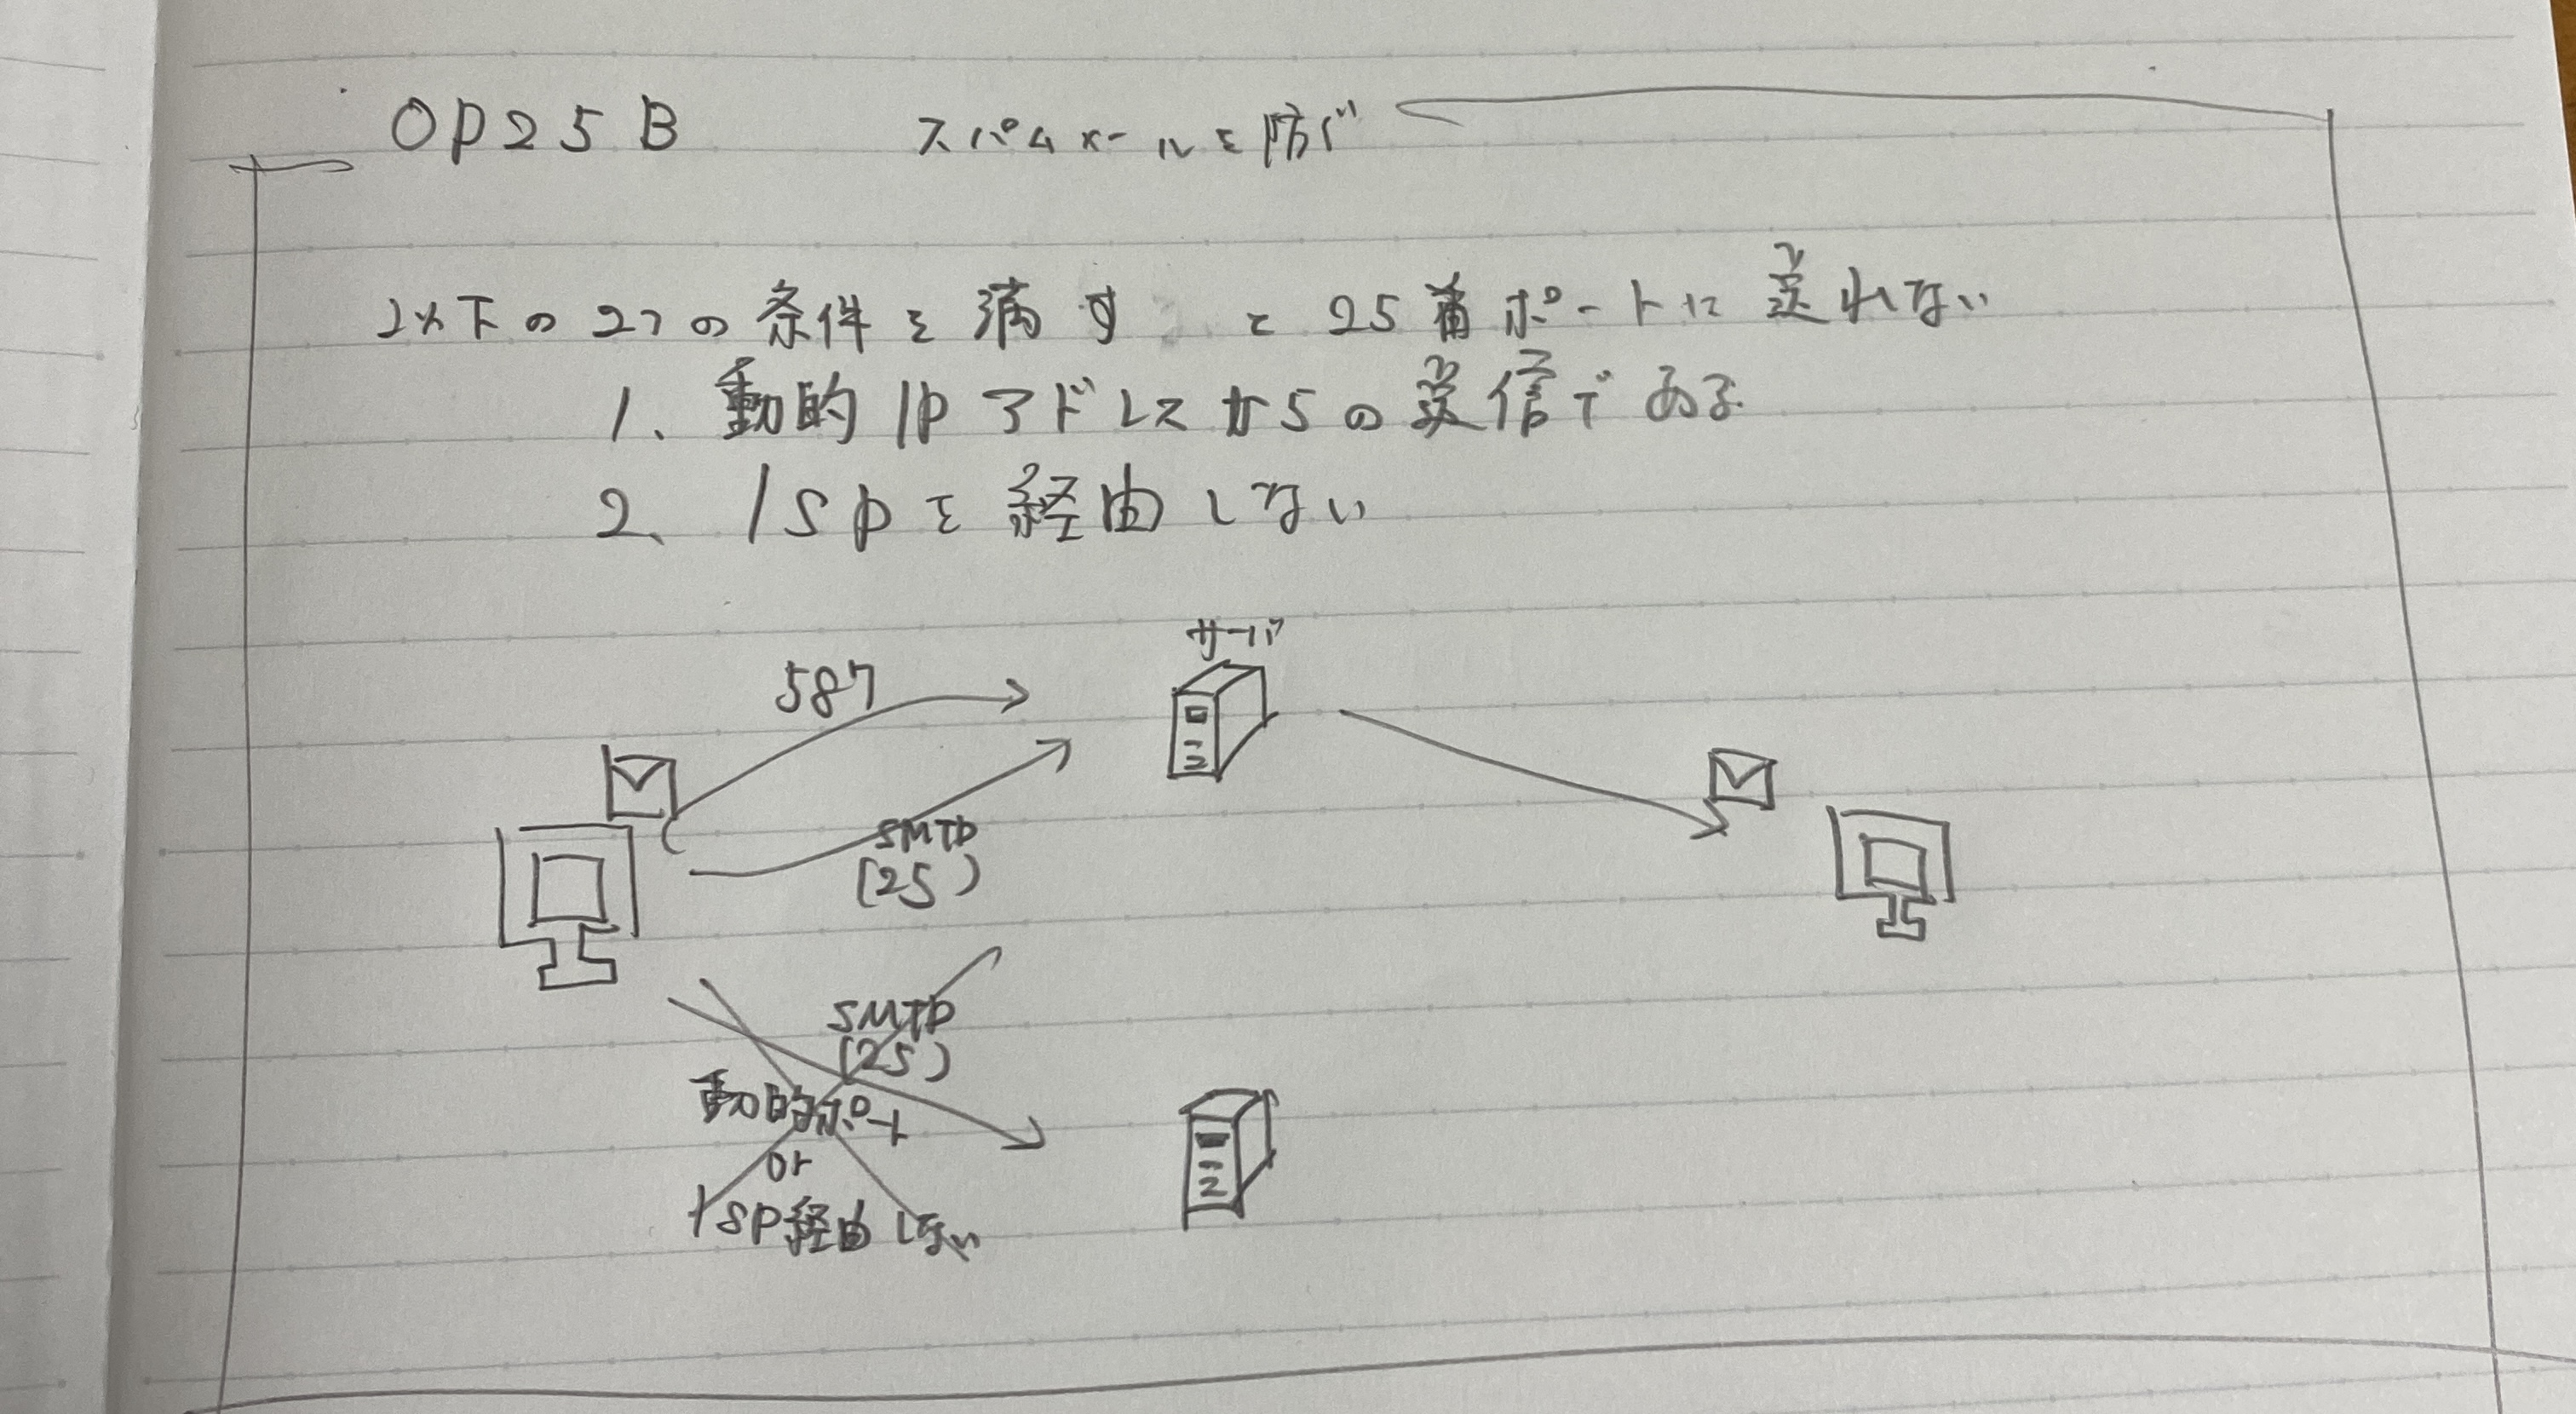 OP25B スパムメールを防ぐ
以下の2つの条件を満すと25番ポートに送れない
1、動的IPアドレスからの送信である
2、ISPを経由しない
サーバ
587
SMTP
(25)
SMTP
(25)
動的ポート
or
ISP経由しない